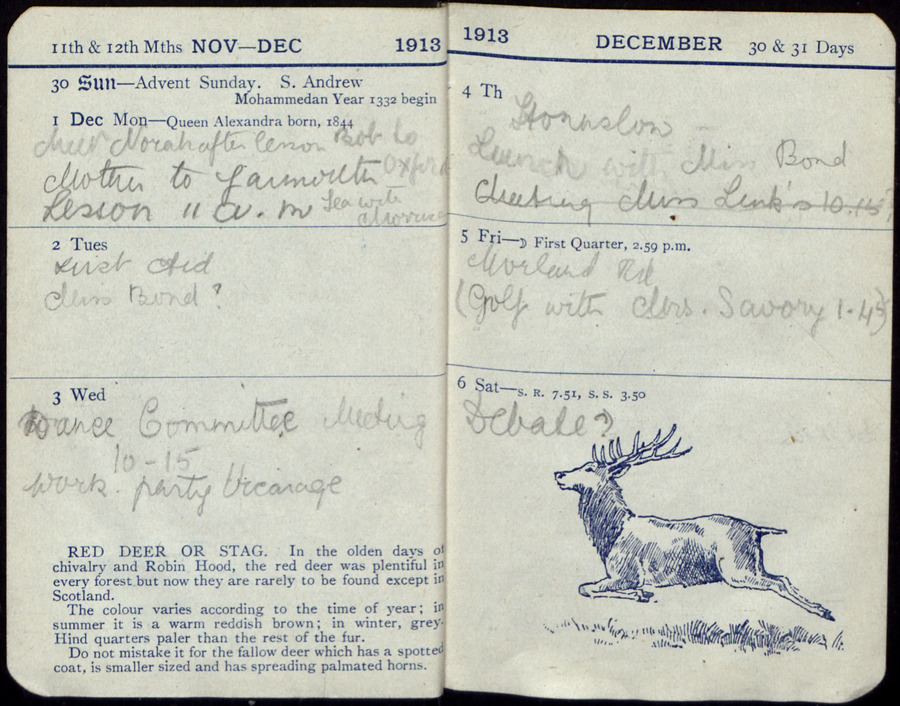 11th & 12th Mths NOV—DEC 1913
30 Sun—Advent Sunday. S. Andrew
Mohammedan Year 1332 begin
1 Dec Mon—Queen Alexandra born, 1844
Meet Norah after lesson Bob to Oxford
Mother to Yarmouth
Lesson 11 a.m Tea with
2 Tues
First Aid
Miss Bond?
3 Wed
Dance Committee Meeting
10-15
Work party Vicarage
RED DEER OR STAG. In the olden days of
chivalry and Robin Hood, the red deer was plentiful in
every forest but now they are rarely to be found except in
Scotland.
The colour varies according to the time of year; in
summer it is a warm reddish brown; in winter, grey.
Hind quarters paler than the rest of the fur.
Do not mistake it for the fallow deer which has a spotted
coat, is smaller sized and has spreading palmated horns.
1913 DECEMBER 30 & 31 Days
4 Th
Lunch with Miss Bond
Meeting Miss Link's 10.15
5 Fri—☽ First Quarter, 2.59 p.m.
Moreland Rd
(Golf with Mrs. Savory 1.45)
6 Sat—S. R. 7.51, S. S. 3.50
Debate?